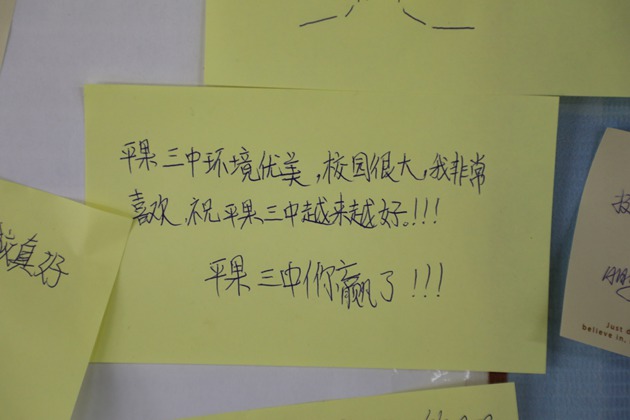 平果三中环境优美,校园很大,我非常
喜欢.祝平果三中越来越好。!!!
平果三中你赢了!!!
真好
believe in.